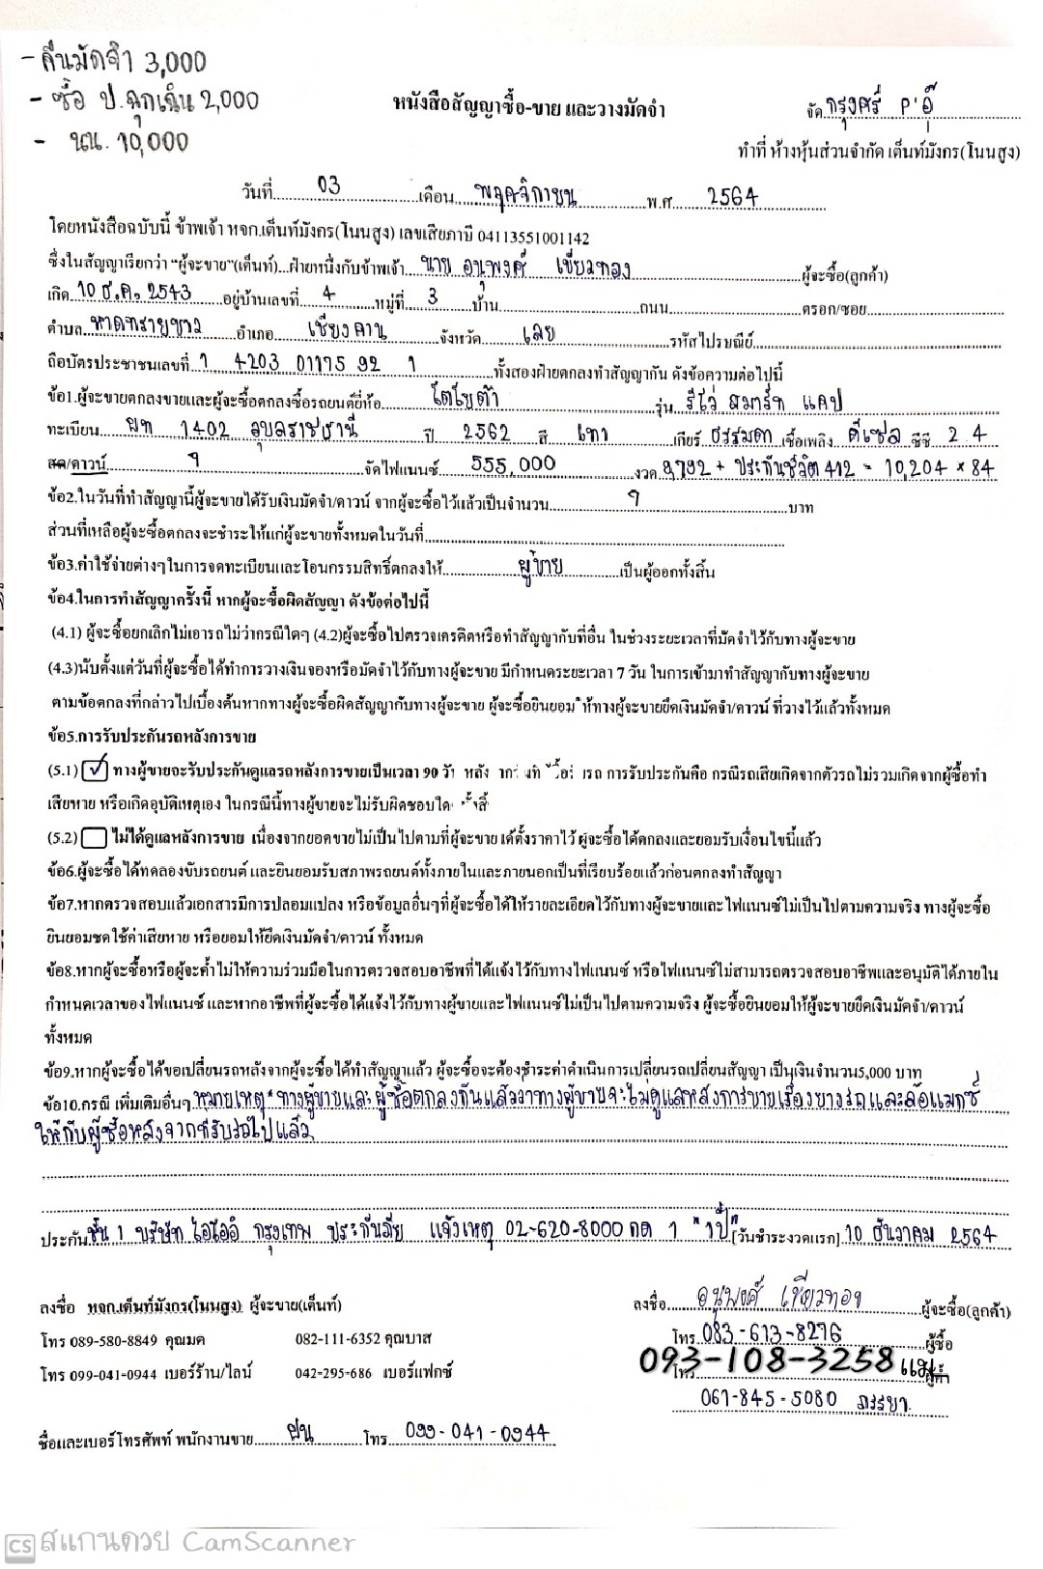 - คืนมัดจำ 3,000
- ซื้อ ป.ฉุกเฉิน 2,000
- นน. 10,000
หนังสือสัญญาซื้อ-ขาย และวางมัดจำ
จัด กรุงศรี P'อุ๊
ทำที่ ห้างหุ้นส่วนจำกัด เต็นท์มังกร(โนนสูง)
วันที่ 03 เดือน พฤศจิกายน พ.ศ. 2564
โดยหนังสือฉบับนี้ ข้าพเจ้า หจก.เต็นท์มังกร(โนนสูง) เลขเสียภาษี 04113551001142
ซึ่งในสัญญาเรียกว่า "ผู้จะขาย"(เต็นท์)...ฝ่ายหนึ่งกับข้าพเจ้า นาย อนุพงศ์ เขียวทอง ผู้จะซื้อ(ลูกค้า)
เกิด 10 ธ.ค. 2543 อยู่บ้านเลขที่ 4 หมู่ที่ 3 บ้าน ถนน ตรอก/ซอย
ตำบล หาดทรายขาว อำเภอ เชียงคาน จังหวัด เลย รหัสไปรษณีย์
ถือบัตรประชาชนเลขที่ 1 4203 01175 92 1 ทั้งสองฝ่ายตกลงทำสัญญากัน ดังข้อความต่อไปนี้
ข้อ1.ผู้จะขายตกลงขายและผู้จะซื้อตกลงซื้อรถยนต์ยี่ห้อ โตโยต้า รุ่น รีโว่ สมาร์ท แคป
ทะเบียน ผท 1402 อุบลราชธานี ปี 2562 สี เทา เกียร์ ธรรมดา เชื้อเพลิง ดีเซล ซีซี 2.4
สด/ดาวน์ ๆ จัดไฟแนนซ์ 555,000 งวด 9,792 + ประกันชีวิต 412 = 10,204 × 84
ข้อ2.ในวันที่ทำสัญญานี้ผู้จะขายได้รับเงินมัดจำ/ดาวน์ จากผู้จะซื้อไว้แล้วเป็นจำนวน ๆ บาท
ส่วนที่เหลือผู้จะซื้อตกลงจะชำระให้แก่ผู้จะขายทั้งหมดในวันที่
ข้อ3.ค่าใช้จ่ายต่างๆในการจดทะเบียนและโอนกรรมสิทธิ์ตกลงให้ ผู้ขาย เป็นผู้ออกทั้งสิ้น
ข้อ4.ในการทำสัญญาครั้งนี้ หากผู้จะซื้อผิดสัญญา ดังข้อต่อไปนี้
(4.1) ผู้จะซื้อยกเลิกไม่เอารถไม่ว่ากรณีใดๆ (4.2)ผู้จะซื้อไปตรวจเครดิตหรือทำสัญญากับที่อื่น ในช่วงระยะเวลาที่มัดจำไว้กับทางผู้จะขาย
(4.3)นับตั้งแต่วันที่ผู้จะซื้อได้ทำการวางเงินจองหรือมัดจำไว้กับทางผู้จะขาย มีกำหนดระยะเวลา 7 วัน ในการเข้ามาทำสัญญากับทางผู้จะขาย
ตามข้อตกลงที่กล่าวไปเบื้องต้นหากทางผู้จะซื้อผิดสัญญากับทางผู้จะขาย ผู้จะซื้อยินยอมให้ทางผู้จะขายยึดเงินมัดจำ/ดาวน์ ที่วางไว้แล้วทั้งหมด
ข้อ5.การรับประกันรถหลังการขาย
(5.1) ✓ ทางผู้ขายจะรับประกันดูแลรถหลังการขายเป็นเวลา 90 วัน หลัง รถ การรับประกันคือ กรณีรถเสียเกิดจากตัวรถไม่รวมเกิดจากผู้ซื้อทำ
เสียหาย หรือเกิดอุบัติเหตุเอง ในกรณีนี้ทางผู้ขายจะไม่รับผิดชอบใด
(5.2) ไม่ได้ดูแลหลังการขาย เนื่องจากยอดขายไม่เป็นไปตามที่ผู้จะขายได้ตั้งราคาไว้ ผู้จะซื้อได้ตกลงและยอมรับเงื่อนไขนี้แล้ว
ข้อ6.ผู้จะซื้อได้ทดลองขับรถยนต์ และยินยอมรับสภาพรถยนต์ทั้งภายในและภายนอกเป็นที่เรียบร้อยแล้วก่อนตกลงทำสัญญา
ข้อ7.หากตรวจสอบแล้วเอกสารมีการปลอมแปลง หรือข้อมูลอื่นๆที่ผู้จะซื้อได้ให้รายละเอียดไว้กับทางผู้จะขายและไฟแนนซ์ไม่เป็นไปตามความจริง ทางผู้จะซื้อ
ยินยอมชดใช้ค่าเสียหาย หรือยอมให้ยึดเงินมัดจำ/ดาวน์ ทั้งหมด
ข้อ8.หากผู้จะซื้อหรือผู้จะค้ำไม่ให้ความร่วมมือในการตรวจสอบอาชีพที่ได้แจ้งไว้กับทางไฟแนนซ์ หรือไฟแนนซ์ไม่สามารถตรวจสอบอาชีพและอนุมัติได้ภายใน
กำหนดเวลาของไฟแนนซ์ และหากอาชีพที่ผู้จะซื้อได้แจ้งไว้กับทางผู้ขายและไฟแนนซ์ไม่เป็นไปตามความจริง ผู้จะซื้อยินยอมให้ผู้จะขายยึดเงินมัดจำ/ดาวน์
ทั้งหมด
ข้อ9.หากผู้จะซื้อได้ขอเปลี่ยนรถหลังจากผู้จะซื้อได้ทำสัญญาแล้ว ผู้จะซื้อจะต้องชำระค่าดำเนินการเปลี่ยนรถเปลี่ยนสัญญา เป็นเงินจำนวน5,000 บาท
ข้อ10.กรณี เพิ่มเติมอื่นๆ หมายเหตุ* ทางผู้ขายและผู้ซื้อตกลงกันแล้วว่าทางผู้ขายจะไม่ดูแลหลังการขายเรื่องยางรถและล้อแมกซ์
ให้กับผู้ซื้อหลังจากที่รับรถไปแล้ว
ประกัน ชั้น 1 บริษัท ไอโออิ กรุงเทพ ประกันภัย แจ้งเหตุ 02-620-8000 กด 1 "1ปี" [วันชำระงวดแรก] 10 ธันวาคม 2564
ลงชื่อ หจก.เต็นท์มังกร(โนนสูง) ผู้จะขาย(เต็นท์)
ลงชื่อ อนุพงศ์ เขียวทอง ผู้จะซื้อ(ลูกค้า)
โทร 089-580-8849 คุณมด 082-111-6352 คุณบาส
โทร 083-613-8276 ผู้ซื้อ
โทร 099-041-0944 เบอร์ร้าน/ไลน์ 042-295-686 เบอร์แฟกซ์
โทร 093-108-3258 แม่ ผู้ค้ำ
061-845-5080 ภรรยา
ชื่อและเบอร์โทรศัพท์ พนักงานขาย ฝน โทร 099-041-0944
CS สแกนด้วย CamScanner